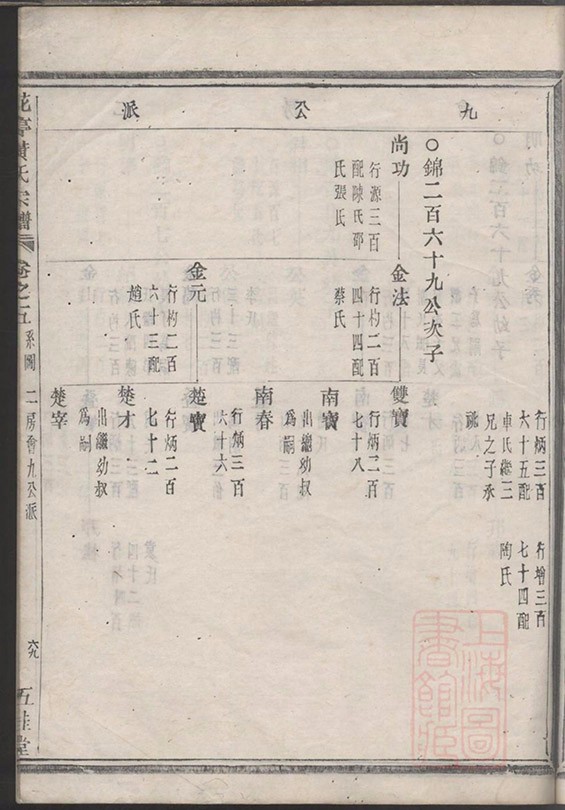 九公派
行炳三百
六十五配
車氏繼三
兄之子承
祧
行增三百
七十四配
陶氏
○錦二百六十九公次子
尚功
行源三百
配陳氏邵
氏張氏
金法
行杓二百
四十四配
蔡氏
雙寶
行炳二百
七十八
南寶
出繼幼叔
為嗣
南春
金元
行杓二百
六十三配
趙氏
楚寶
行炳三百
六十六
楚才
行炳二百
七十二
出繼幼叔
為嗣
楚宰
花亭黄氏宗譜
卷之五
系圖
二房會九公派
六九
五桂堂
上海圖
書館藏